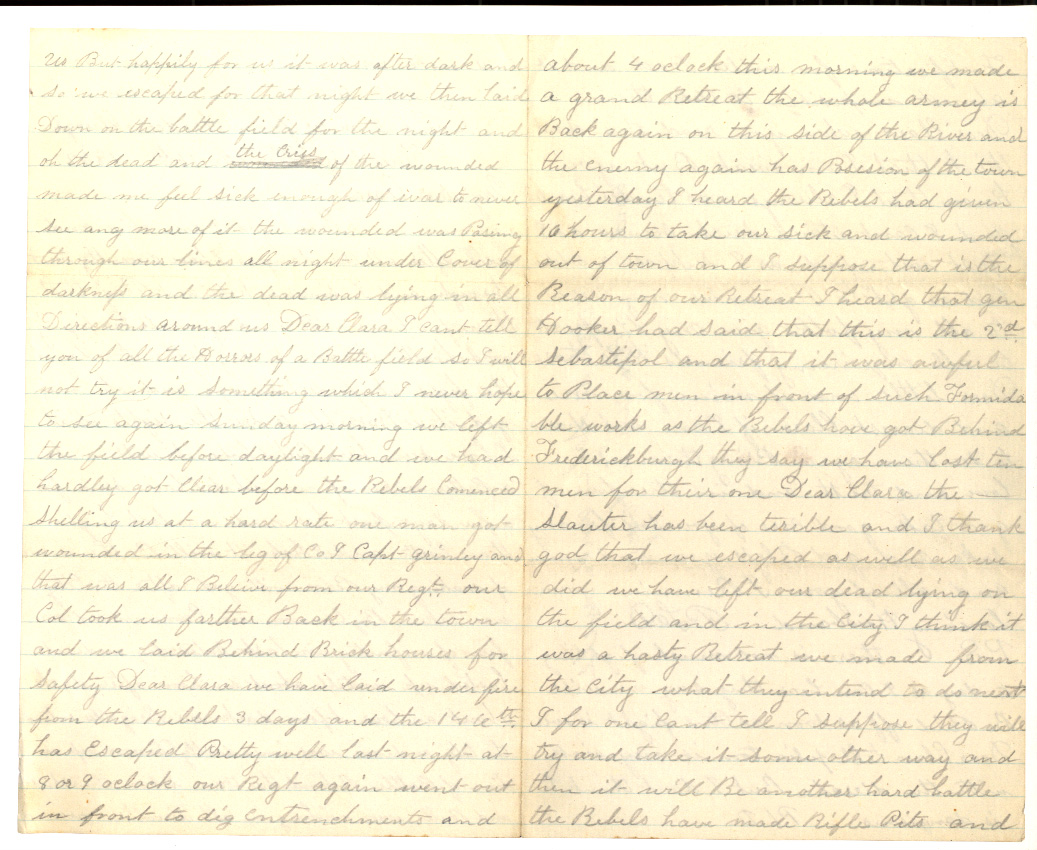 us But happily for us it was after dark and
so we escaped for that night we then laid
Down on the battle field for the night and
oh the dead and the Crys of the wounded
made me feel sick enough of war to never
see any more of it the wounded was Pasing
through our lines all night under Cover of
darkness and the dead was lying in all
Directions around us Dear Clara I cant tell
you of all the Horrors of a Battle field so I will
not try it is something which I never hope
to see again Sunday morning we left
the field before daylight and we had
hardley got Clear before the Rebels Comenced
shelling us at a hard rate one man got
wounded in the leg of Co I Capt grinley and
that was all I Beleive from our Regt our
Col took us farther Back in the town
and we laid Behind Brick houses for
safety Dear Clara we have laid under fire
from the Rebels 3 days and the 146th
has Escaped Pretty well last night at
8 or 9 oclock our Regt again went out
in front to dig Entrenchments and
about 4 oclock this morning we made
a grand Retreat the whole armey is
Back again on this side of the River and
the Enemy again has Posesion of the town
yesterday I heard the Rebels had given
16 hours to take our sick and wounded
out of town and I suppose that is the
Reason of our Retreat I heard that gen
Hooker had said that this is the 2nd
Sebastipol and that it was awful
to Place men in front of such Formida
ble works as the Rebels have got Behind
Frederickburgh they say we have lost ten
men for their one Dear Clara the —
slauter has been terible and I thank
god that we escaped as well as we
did we have left our dead lying on
the field and in the City I think it
was a hasty Retreat we made from
the City what they intend to do next
I for one Cant tell I suppose they will
try and take it some other way and
then it will Be another hard battle
the Rebels have made Rifle Pits and